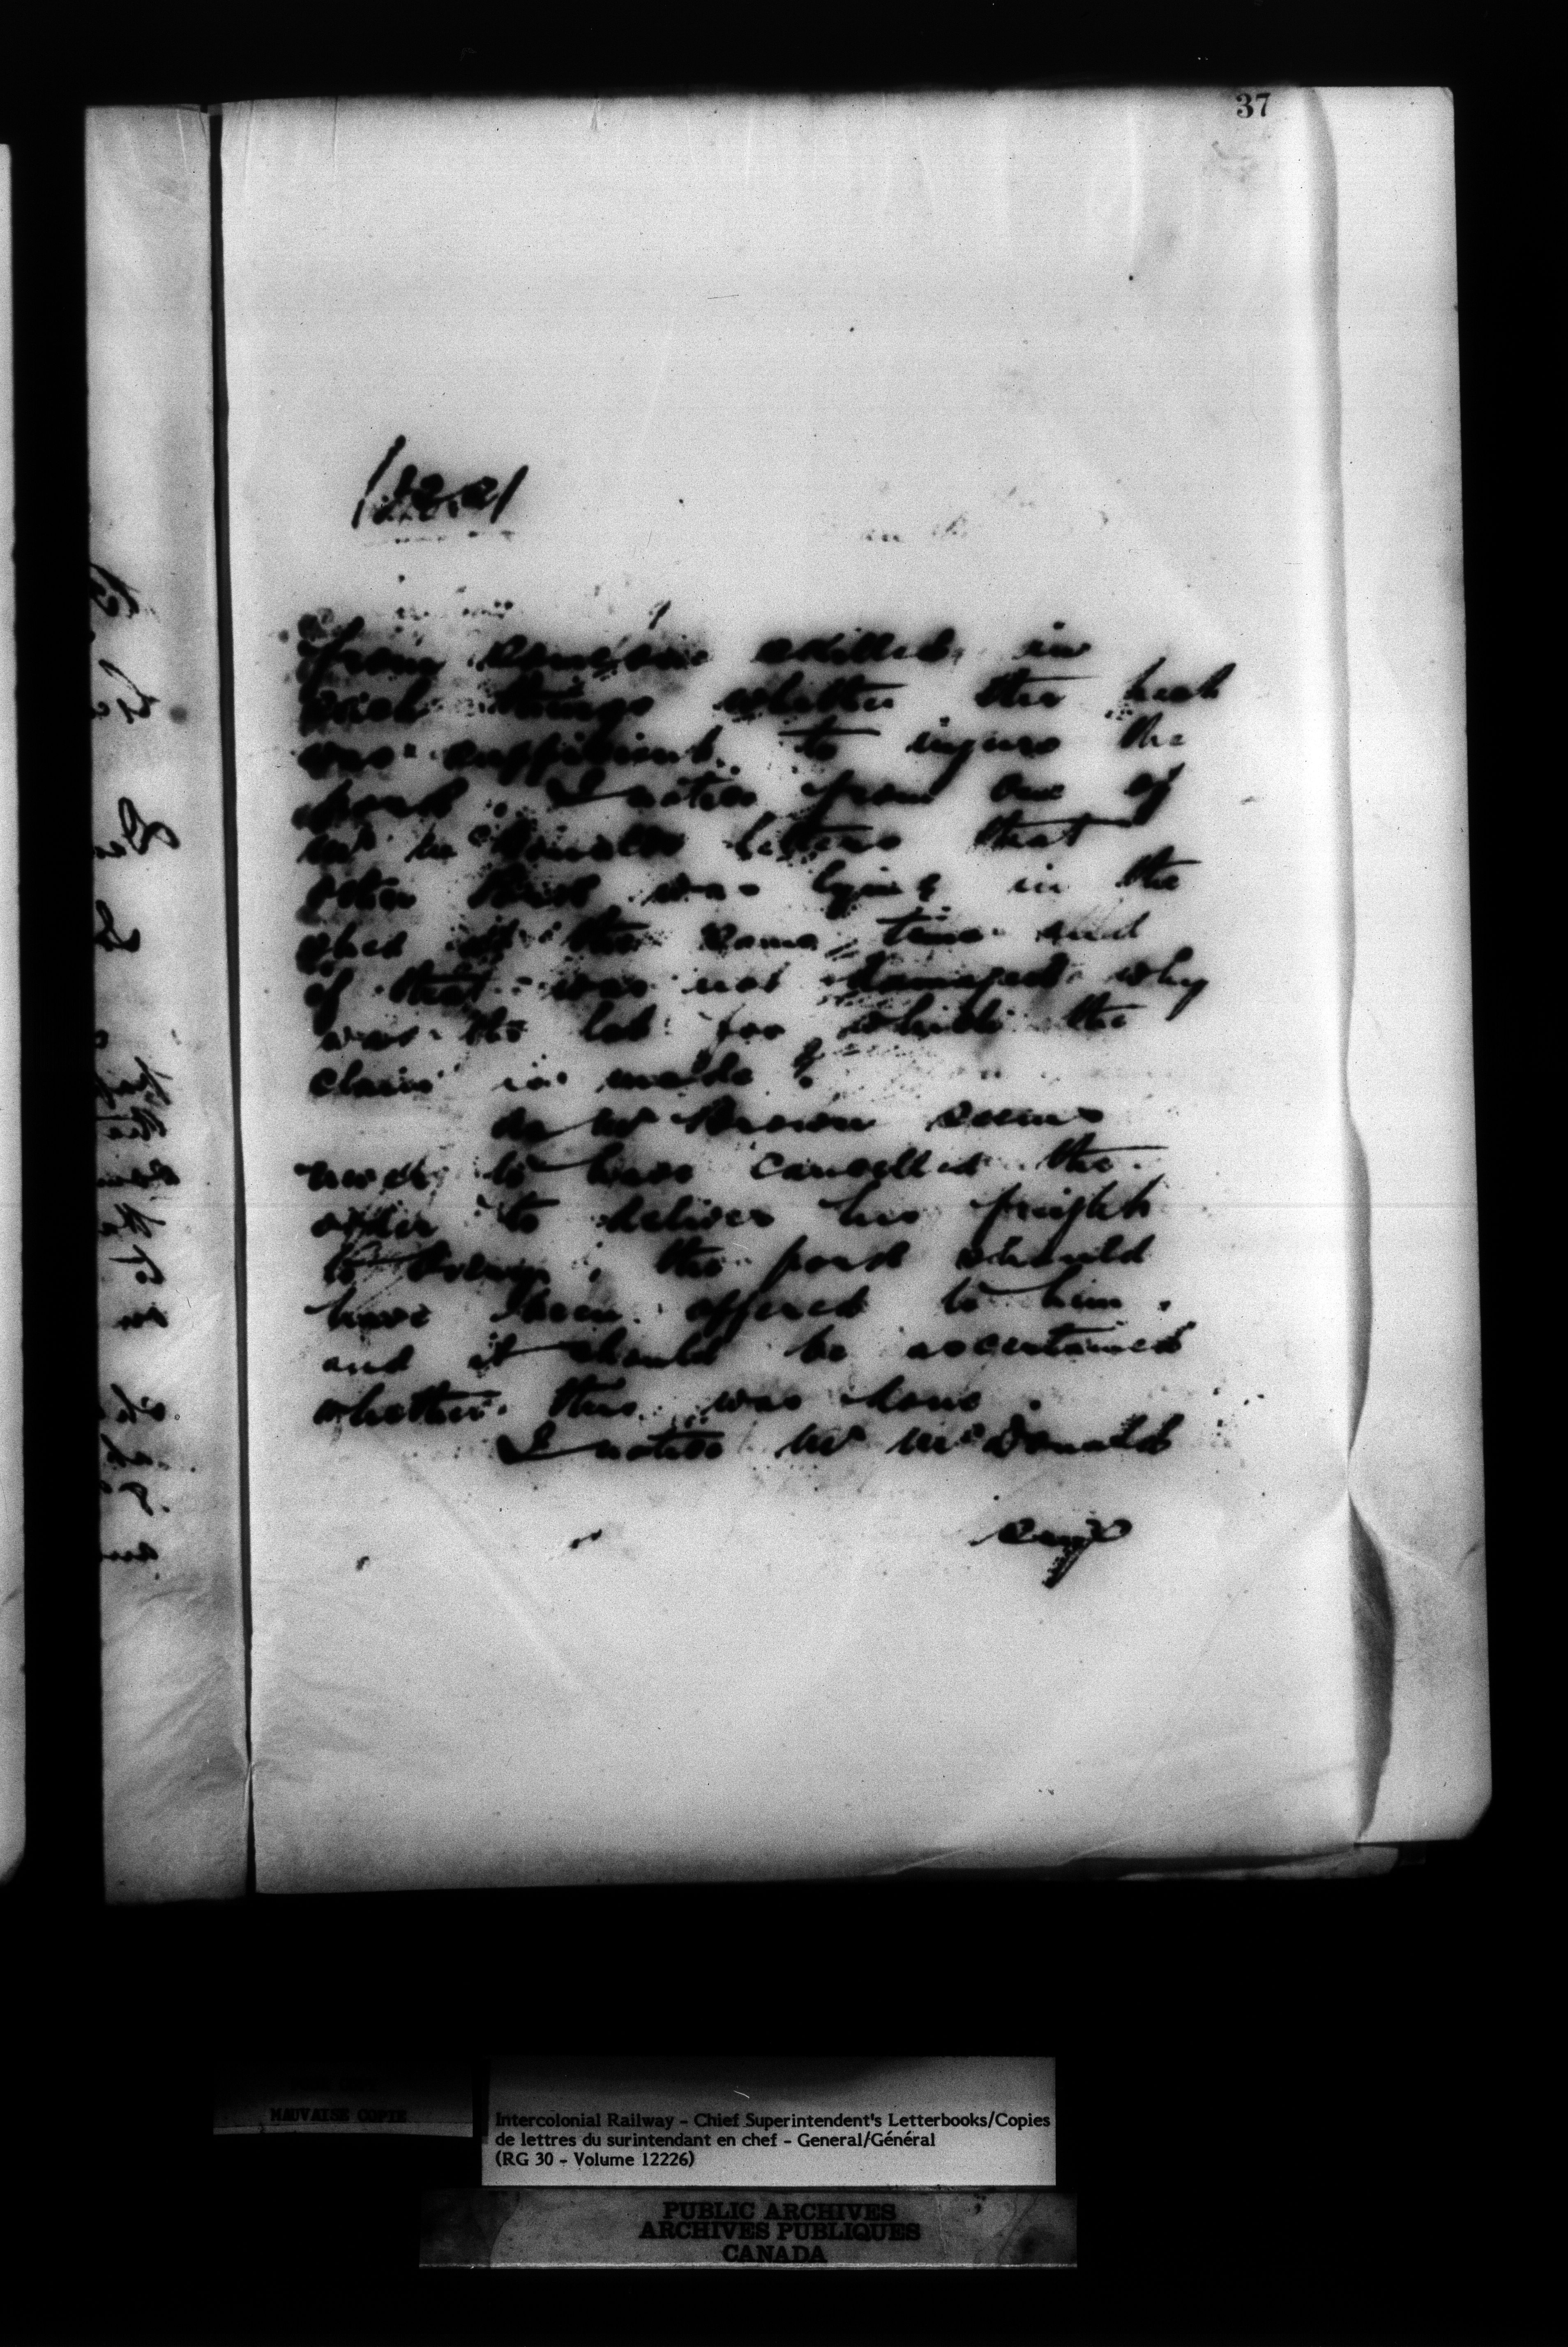 37
from someone skilled in
such things whether the heat
was sufficient to injure the
pork. I notice from one of
Mr McDonalds letters that
other pork was lying in the
shed at the same time and
if that was not damaged why
was the lot for which the
claim is made ?
As Mr Brown seems
never to have cancelled the
order to deliver his freight
to , the pork should
have been offered to him,
and it should be ascertained
whether this was done.
I notice Mr McDonald
says
MAUVAISE COPIE
Intercolonial Railway - Chief Superintendent's Letterbooks/Copies
de lettres du surintendant en chef - General/Général
(RG 30 - Volume 12226)
PUBLIC ARCHIVES
ARCHIVES PUBLIQUES
CANADA